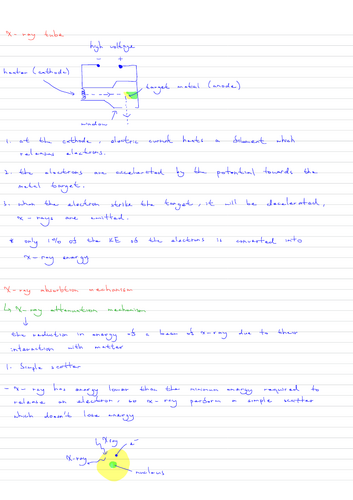 x-ray tube
high voltage
- +
heater (cathode)
target metal (anode)
window
1. at the cathode, electric current heats a filament which
releases electrons.
2. the electrons are accelerated by the potential towards the
metal target.
3. when the electron strike the target, it will be decelerated,
x-rays are emitted.
* only 1% of the KE of the electrons is converted into
x-ray energy
X-ray absorbtion mechanism
↳ X-ray attenuation mechanism
↓
the reduction in energy of a beam of x-ray due to their
interaction with matter
1- Simple scatter
- x-ray has energy lower than the minimum energy required to
release an electron, so x-ray perform a simple scatter
which doesn't lose energy
x-ray
e⁻
x-ray
nucleus